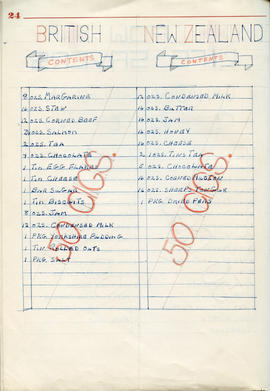 24
BRITISH
CONTENTS
8 OZS. MARGARINE
16 OZS. STEW
12 OZS. CORNED BEEF
OZS. SALMON
2 OZS. TEA
OZS. CHOCOLATE
1 TIN. EGG FLAKES
1 TIN CHEESE
1 BAR SUGAR
1 TIN. BISCUITS
8 OZS. JAM
12 OZS. CONDENSED MILK
1 PKG. YORKSHIRE PUDDING
1 TIN. ROLLED OATS
1 PKG. SALT
50 CIGS.
NEW ZEALAND
CONTENTS
OZS. CONDENSED MILK
16 OZS. BUTTER
16 OZS. JAM
16 OZS. HONEY
16 OZS. CHEESE
2 TINS TEA
OZS. CHOCOLATE
16 OZS. CORNED MUTTON
16 OZS. SHEEPS TONGUE
1 PKG. DRIED PEAS
50 CIGS.